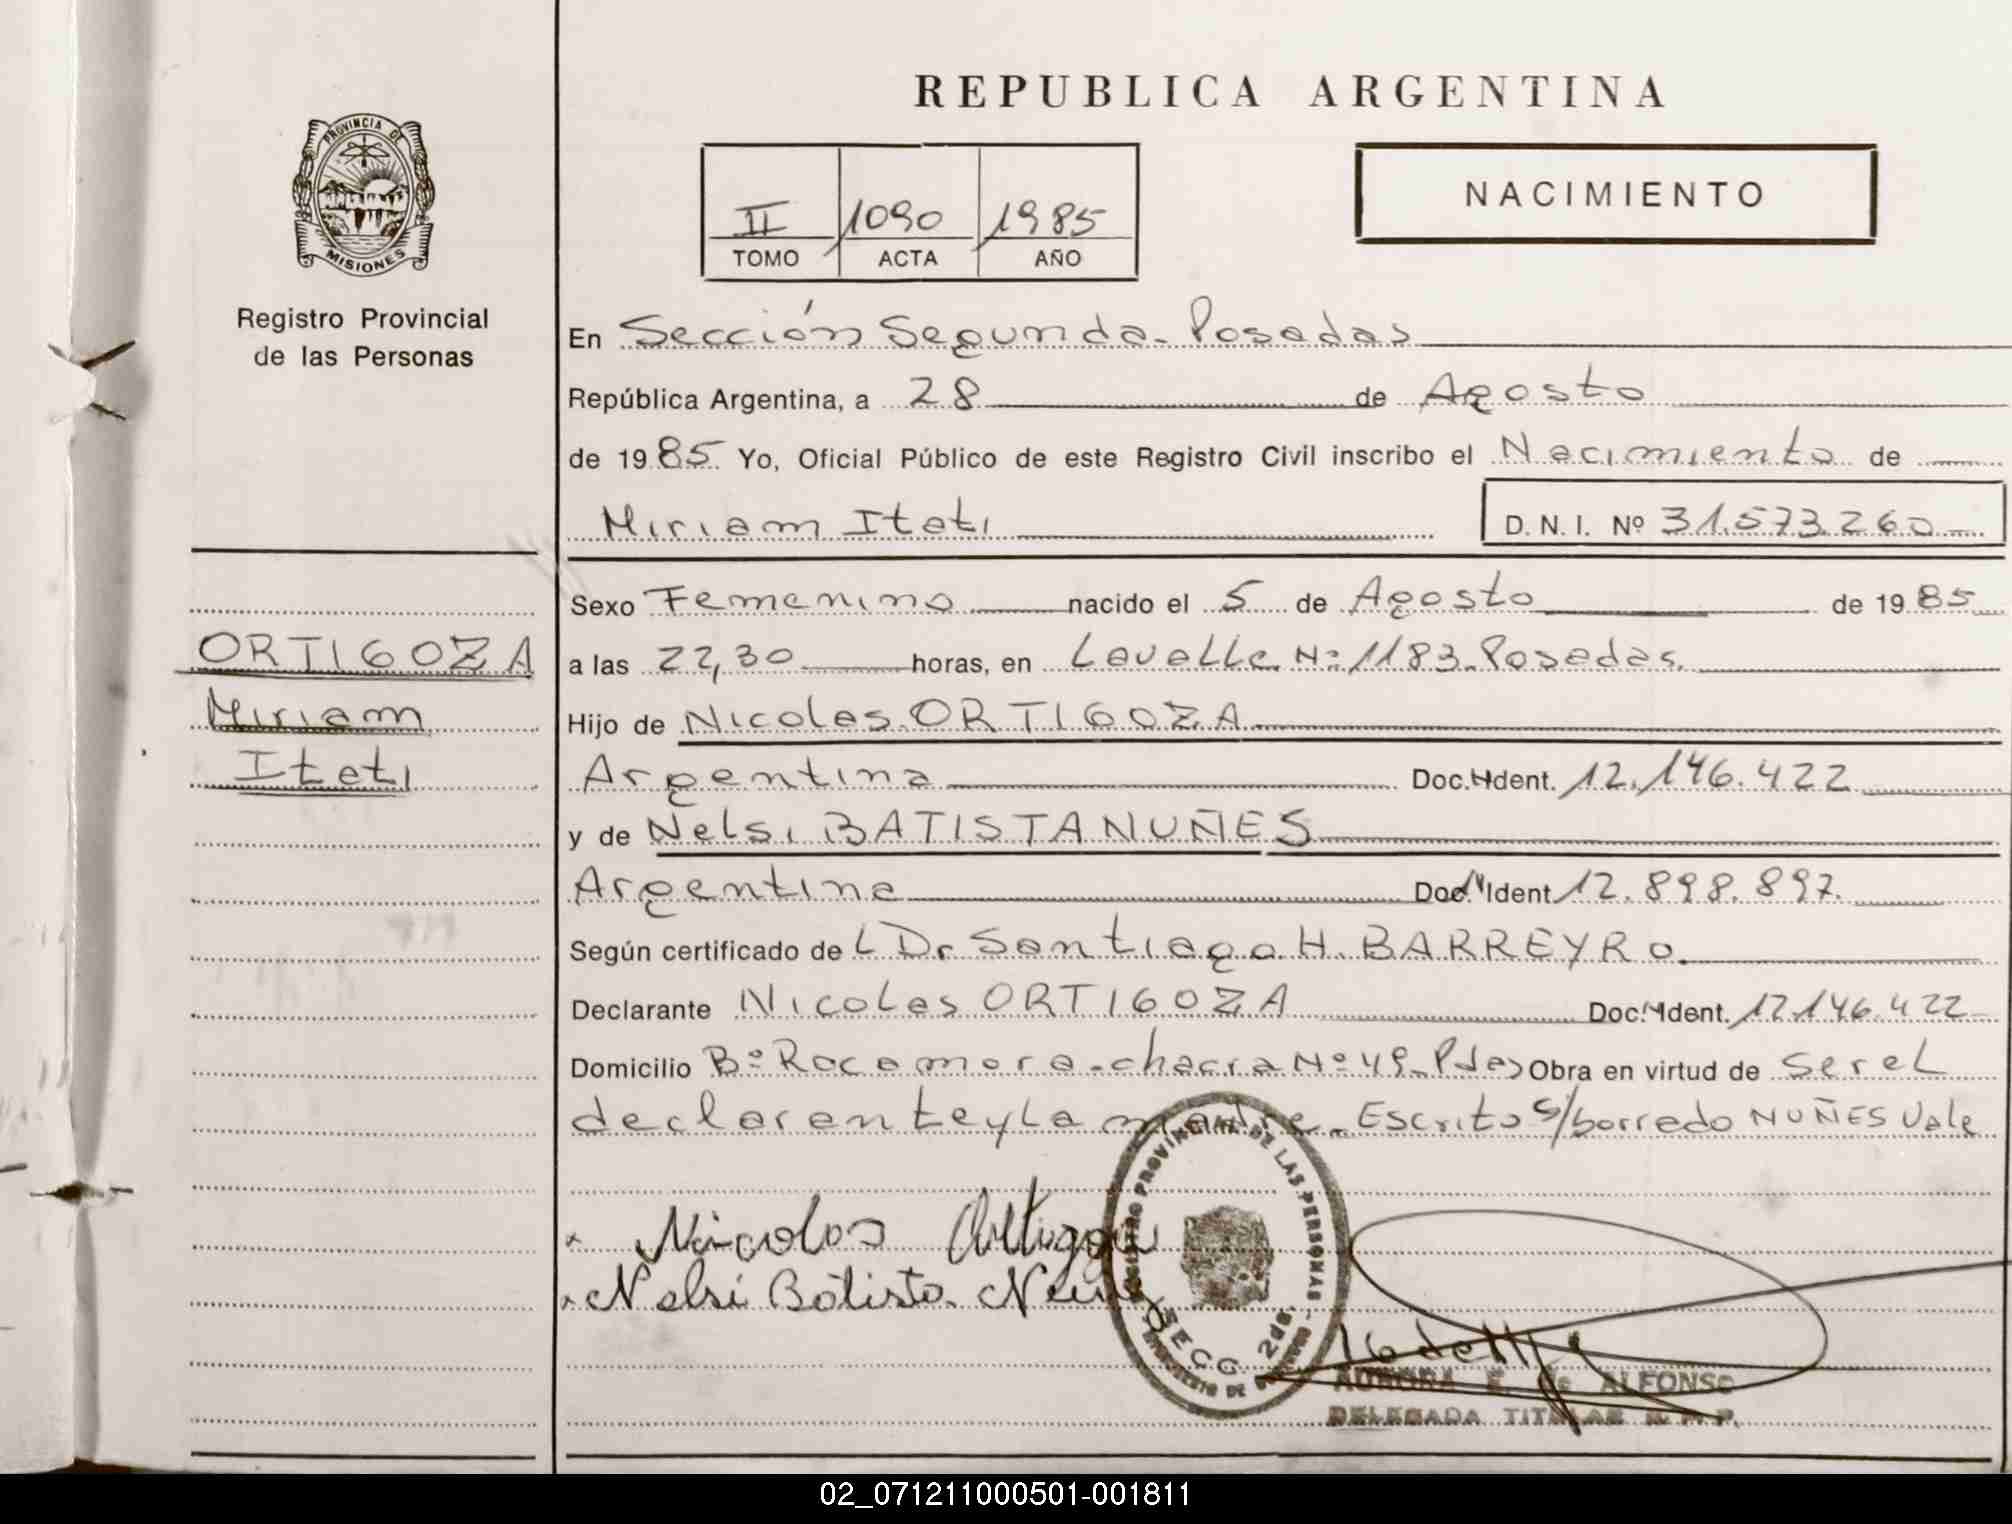 PROVINCIA DE
MISIONES
Registro Provincial
de las Personas
ORTIGOZA
Miriam
Itatí
REPUBLICA ARGENTINA
NACIMIENTO
II 1090 1985
TOMO ACTA AÑO
En Sección Segunda - Posadas
República Argentina, a 28 de Agosto
de 1985. Yo, Oficial Público de este Registro Civil inscribo el Nacimiento de
Miriam Itatí D. N. I. Nº 31.573.260
Sexo Femenino nacido el 5 de Agosto de 1985
a las 22,30 horas, en Lavalle Nº 1183 - Posadas
Hijo de Nicolas ORTIGOZA
Argentina Doc. Ident. 12.146.422
y de Nelsi BATISTA NUÑES
Argentina Doc. Ident. 12.898.897.
Según certificado de L Dr Santiago H. BARREYRO.
Declarante Nicolas ORTIGOZA Doc. Ident. 12.146.422
Domicilio Bº Rocamora - chacra Nº 49 - Pdas Obra en virtud de ser el
declarante y la madre - Escrito s/borrado NUÑES Vale
Nicolas
Nelsi Batista
REGISTRO PROVINCIAL DE LAS PERSONAS
SECC. 2da.
AURORA E. de ALFONSO
DELEGADA TITULAR R. P. P.
02_071211000501-001811